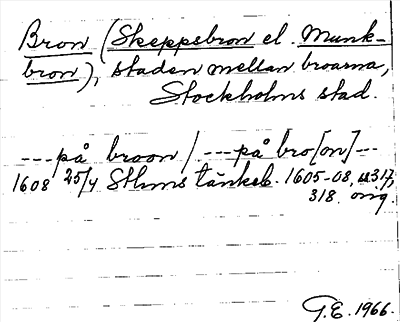 Bron (Skeppsbron el. Munk-
bron), staden mellan broarna,
Stockholms stad.
---på broon / ---på bro[on]---
1608 25/4 Sthms tänkeb. 1605-08, s. 317,
318. orig.
G.E. 1966.